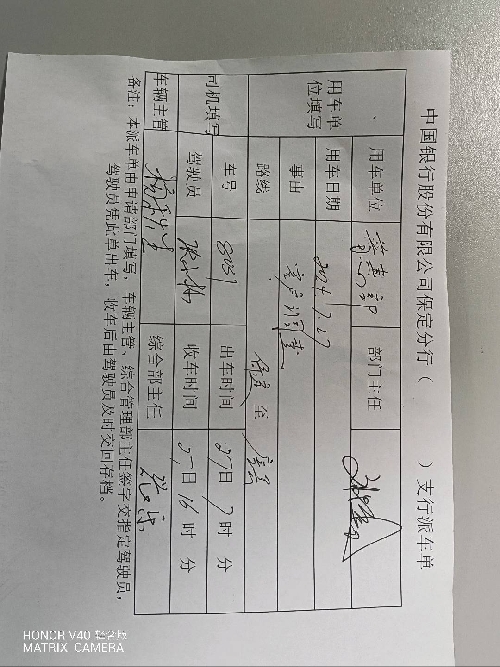 中国银行股份有限公司保定分行（ ）支行派车单
用车单位填写 用车单位 部门主任
用车日期 2024.7.27
事由 客户调查
路线 保定 至
司机填写 车号 出车时间 27日 7时 分
驾驶员 收车时间 27日 16时 分
车辆主管 综合部主任
备注：本派车单由申请部门填写，车辆主管、综合管理部主任签字交指定驾驶员，
驾驶员凭此单出车，收车后由驾驶员及时交回存档。
HONOR V40 轻奢版
MATRIX CAMERA